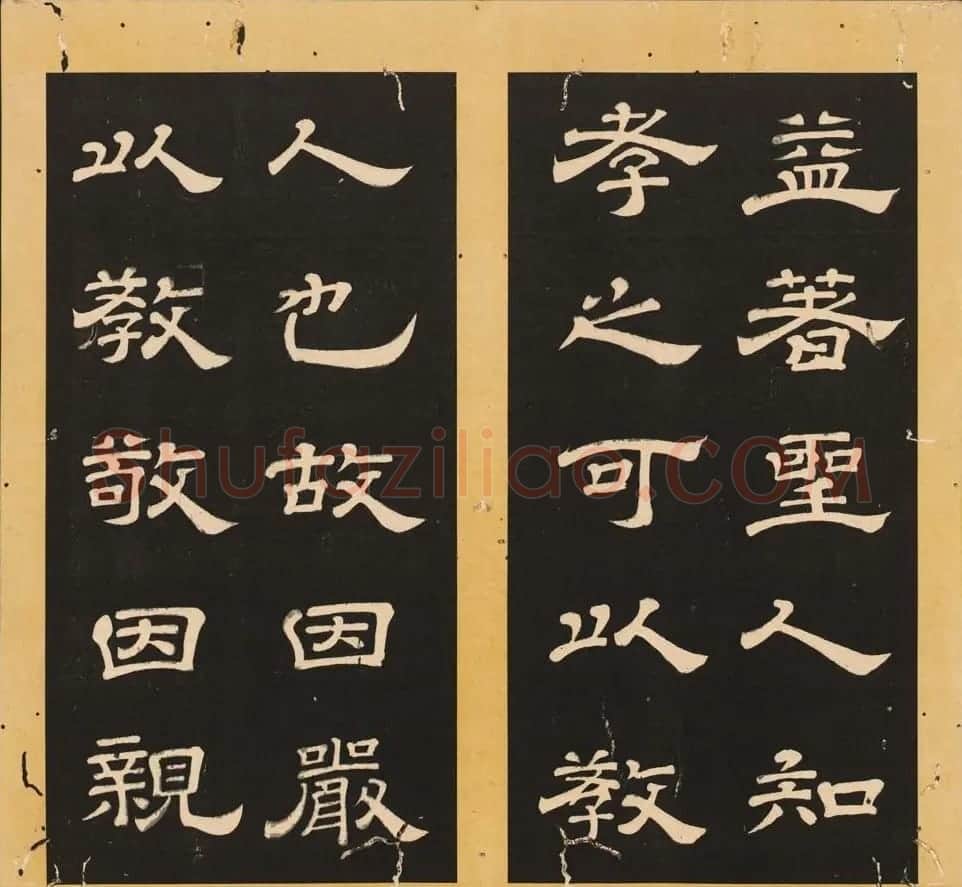 益著聖人知
孝之可以教
人也故因嚴
以教敬因親
Shufaziliao.COM